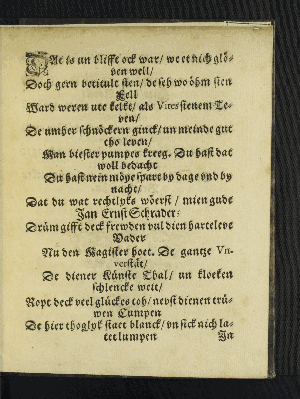 DAt is un blifft ock war/ we et nich glö-
ven well/
Doch gern betitult sien/ de seh wo öhm sien
Fell
Ward weren ute kelkt/ als Vites sienem Te-
ven/
De umher schnöckern ginck/ un meinde gut
tho leven/
Man biester pumpes kreeg. Du hast dat
woll bedacht
Du hast nein möye spart by dage und by
nacht/
Dat du wat rechtlyks wöerst/ mien gude
Jan Ernst Schrader:
Drüm gifft deck frewden vul dien harteleve
Vader
Nu den Magister hoet. De gantze Vn-
verstät/
De diener Künste Thal/ un kloeken
schlencke weit/
Ropt deck veel glückes toh/ nevst dienen trü-
wen Cumpen
De hier thoglyk staet blanck/ vn sick nich la-
tet lumpen
In